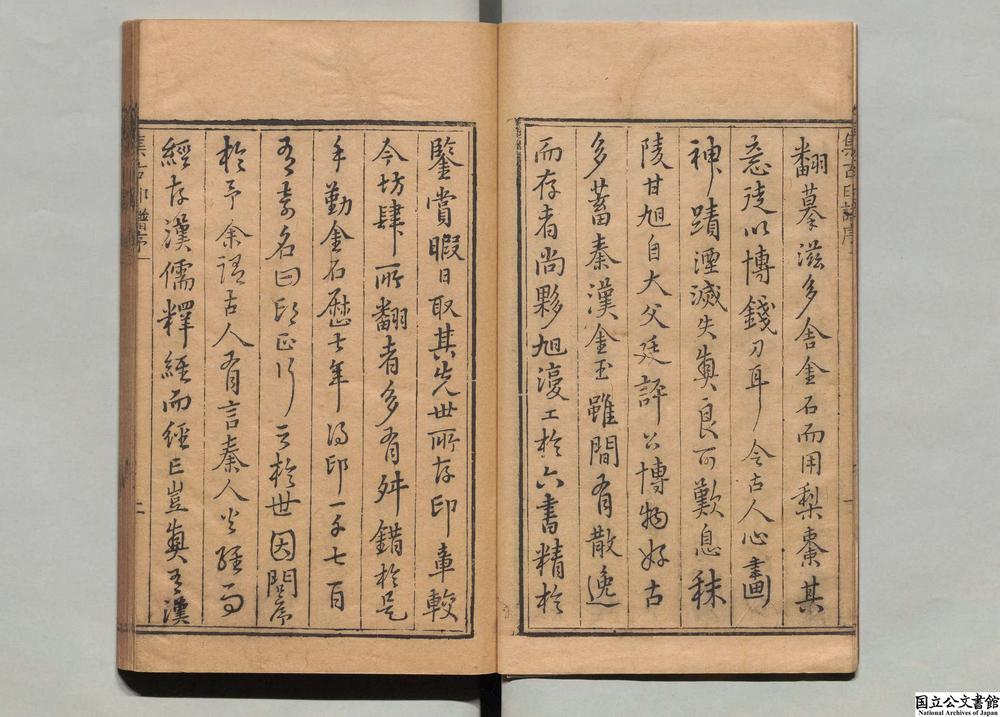 集古印譜序
一
翻摹滋多舍金石而用梨棗其
意徒以博錢刀耳令古人心畫
神蹟湮滅失真良可歎息秣
陵甘旭自大父廷評公博物好古
多蓄秦漢金玉雖間有散逸
而存者尚夥旭工於六書精於
鑒賞暇日取其先世所存印章較
今坊肆所翻者多有舛錯於是
手勤金石歷七年得印一千七百
有奇名曰印正行之於世因問序
於予余謂古人有言秦人焚經而
經存漢儒釋經而經亡豈真有漢
集古印譜序
二
国立公文書館
National Archives of Japan